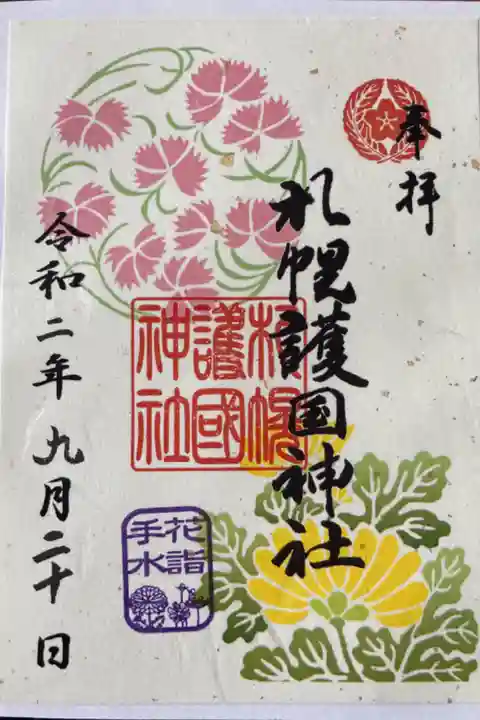 奉拝
札幌護国神社
札幌
護國
神社
令和二年九月二十日
花詣
手水